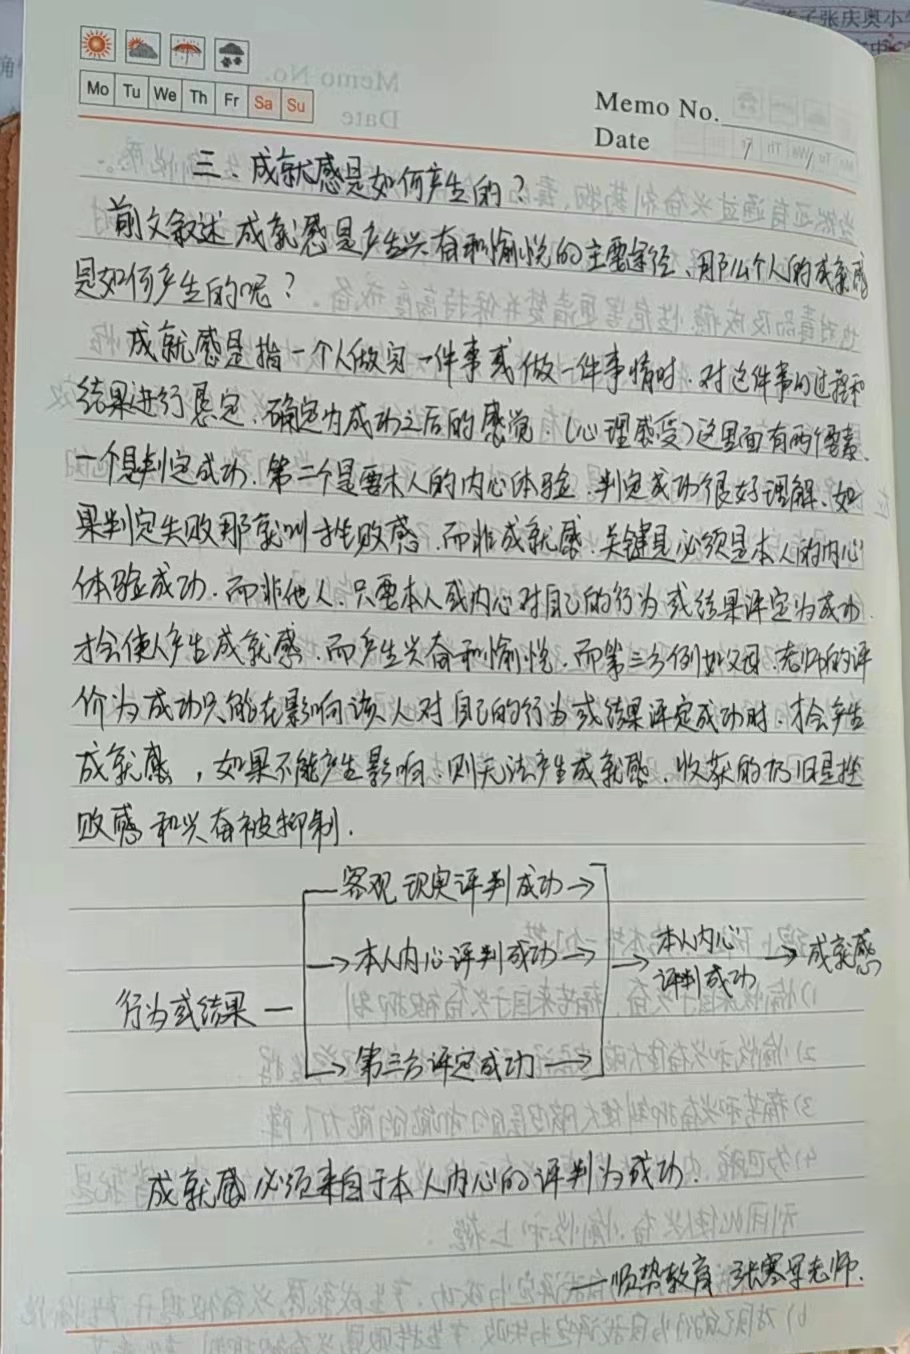 Mo Tu We Th Fr Sa Su
Memo No.
Date
三、成就感是如何产生的？
前文叙述成就感是产生兴奋和愉悦的主要途径、那么个人的成就感
是如何产生的呢？
成就感是指一个人做完一件事或做一件事情时．对这件事的过程和
结果进行评定、确定为成功之后的感觉．（心理感受）这里面有两个要素．
一个是判定成功．第二个是要本人的内心体验．判定成功很好理解、如
果判定失败那就叫挫败感．而非成就感．关键是必须是本人的内心
体验成功．而非他人．只要本人或内心对自己的行为或结果评定为成功．
才会使人产生成就感．而产生兴奋和愉悦．而第三方例如父母．老师的评
价为成功只能在影响该人对自己的行为或结果评定成功时．才会产生
成就感，如果不能产生影响．则无法产生成就感．收获的仍旧是挫
败感和兴奋被抑制．
客观现实评判成功→
行为或结果
→本人内心评判成功→
→第三方评定成功→
→本人内心
评判成功
→成就感
成就感必须来自于本人内心的评判为成功．
——顺势教育 张寒星老师．